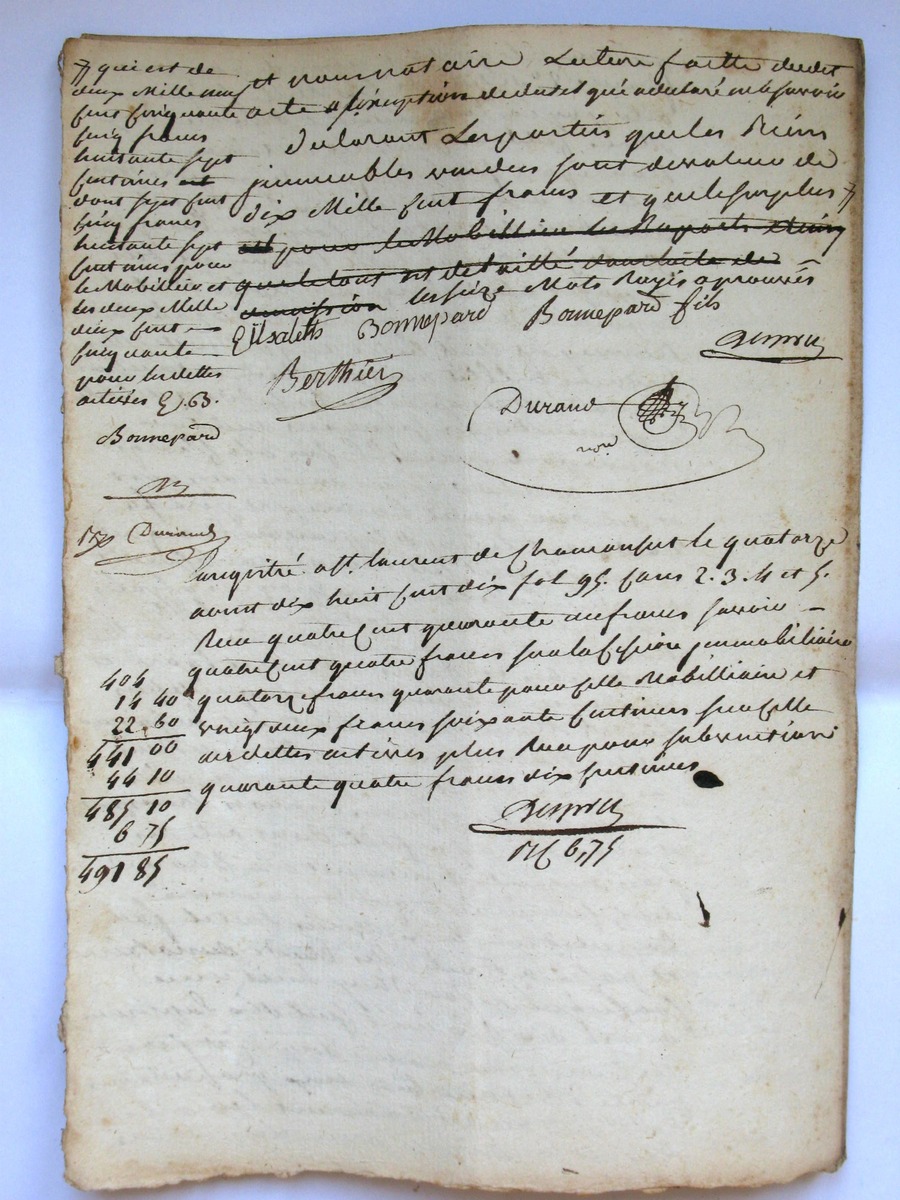 et nous notaire Lecture faitte dudit
acte a l'éxception dedutel qui a declaré ne le savoir
declarant Les parties que les Biens
jmmeubles vendus sont de valeur de
dix Mille cent francs et que le surplus
est pour le Mobillier les Raports étéing
que le tout est detaillé dans l'acte de
les seize Mots Rayés aprouvés
Elisabeth Bonnepard Bonnepard fils
Berthier
Durand
nore
qui est de
deux Mille neuf
cent cinquante
cinq francs
huitante sept
centimes et
dont sept cent
cinq francs
huitante sept
centimes pour
le Mobillier et
les deux Mille
deux cent
cinquante
pour les dettes
actives E. B.
Bonnepard
Durand
Enregistré a St. laurent de Chamousset le quatorze
aoust dix huit cent dix fol 95. cases 2. 3. 4 et 5.
Reçu quatre cent quarante un francs savoir
quatre cent quatre francs sur la Cession jmmobiliaire
quatorze francs quarante pour celle Mobilliaire et
vingt deux francs soixante Centimes sur celle
des dettes actives plus Reçu pour subvention
quarante quatre francs dix centimes
404
14 40
22 60
441 00
44 10
485 10
6 75
491 85
6,75